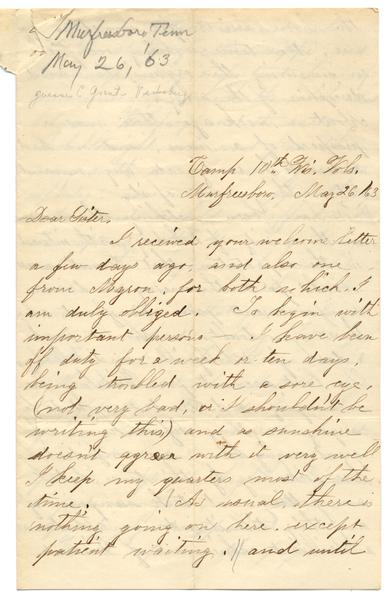 Murfreesboro Tenn
May 26, '63
Grant Vicksburg
Camp 10th Wis. Vols.
Murfreesboro, May 26 /63
Dear Sister.
I received your welcome letter
a few days ago, and also one
from Myron, for both which I
am duly obliged. To begin with
important persons— I have been
off duty for a week or ten days,
being troubled with a sore eye,
(not very bad, or I shouldn't be
writing this) and as sunshine
doesn't agree with it very well
I keep my quarters most of the
time. (As usual, there is
nothing going on here, except
patient waiting.)) and until